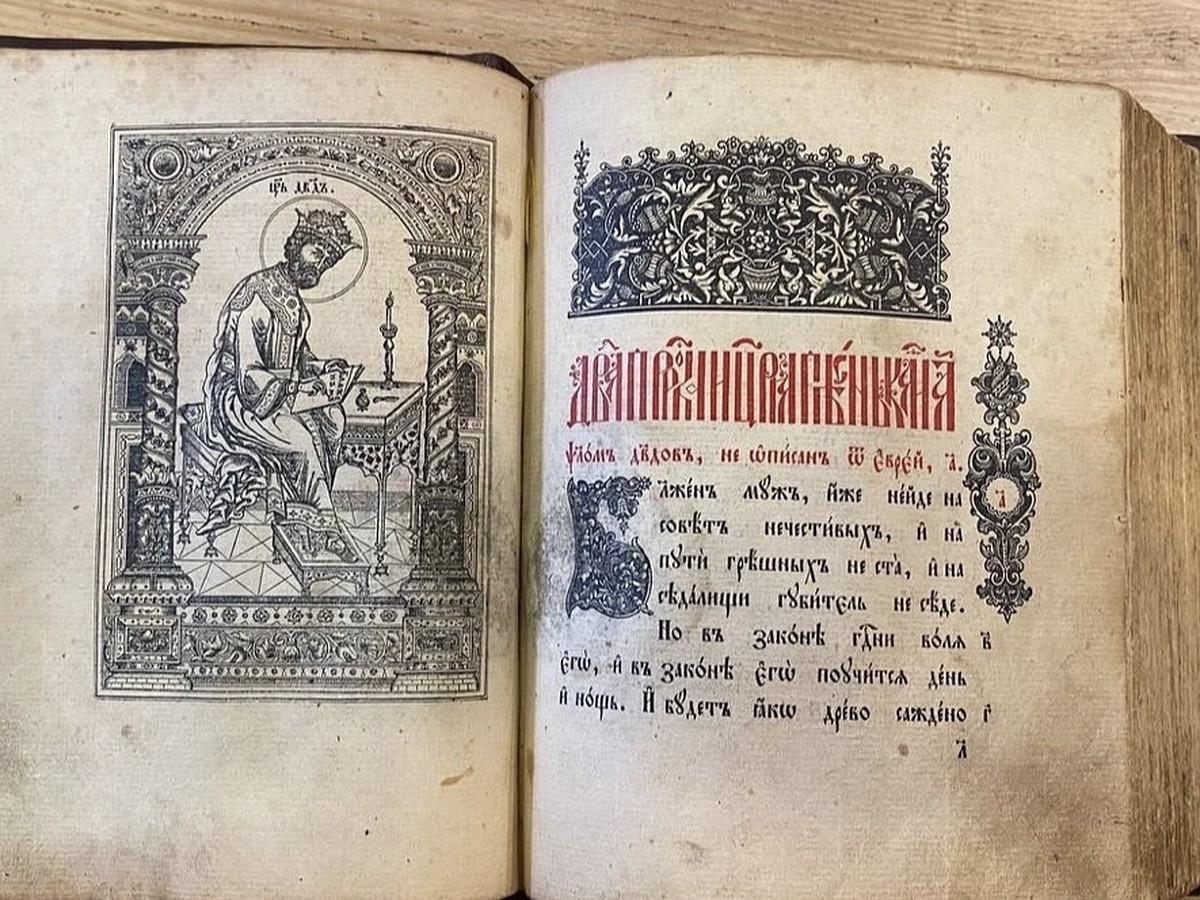 цр҃ь дв҃дъ.
ѱало́мъ дв҃довъ, не ѡ҆пи́санъ ѿ є҆врє́й, а҃.
Блаже́нъ мꙋжъ, и҆́же не́йде на
совѣ́тъ нечести́выхъ, и҆ на
пꙋти̑ грѣ́шныхъ не ста̀, и҆ на
сѣда́лищи гꙋби́тєль не сѣ́де.
Но въ зако́нѣ гдⷭ҇ни во́ля в҃
є҆гѡ̀, и҆ въ зако́нѣ є҆гѡ̀ поꙋчи́тся де́нь
и҆ но́щь. И҆ бꙋ́детъ ꙗ҆́кѡ дре́во сажде́но г҃
а҃
а҃